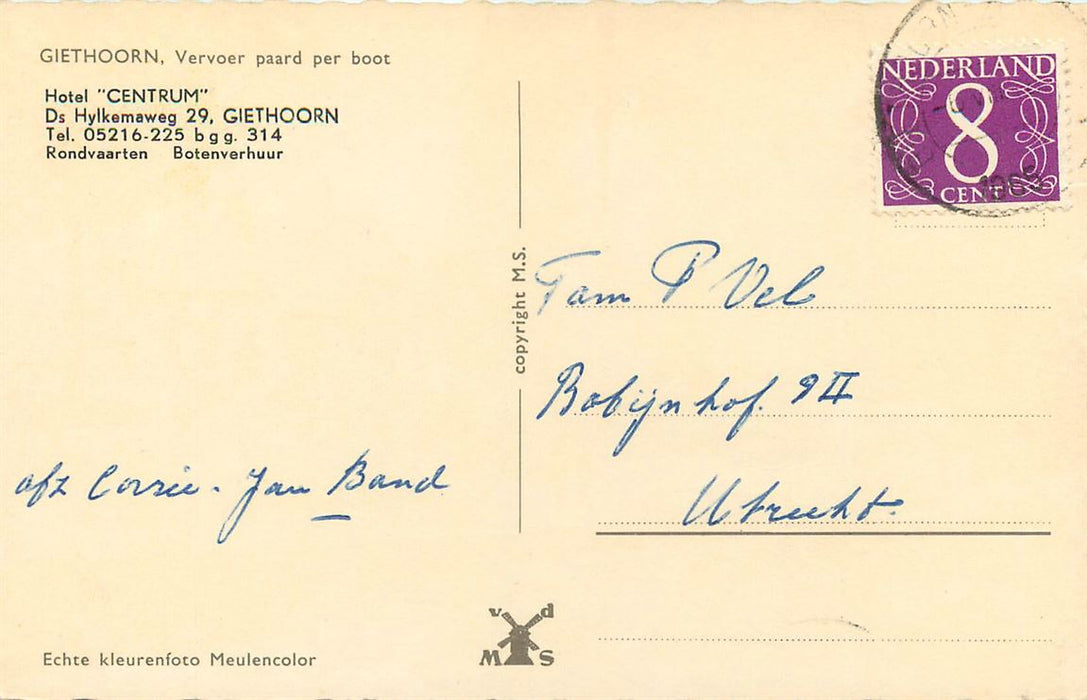 GIETHOORN, Vervoer paard per boot
Hotel "CENTRUM"
Ds Hylkemaweg 29, GIETHOORN
Tel. 05216-225 b g g. 314
Rondvaarten Botenverhuur
afz Corrie - Jan Band
Echte kleurenfoto Meulencolor
copyright M.S.
v d
M S
NEDERLAND
8
CENT
Fam P Vel
Robijnhof. 9 II
Utrecht.